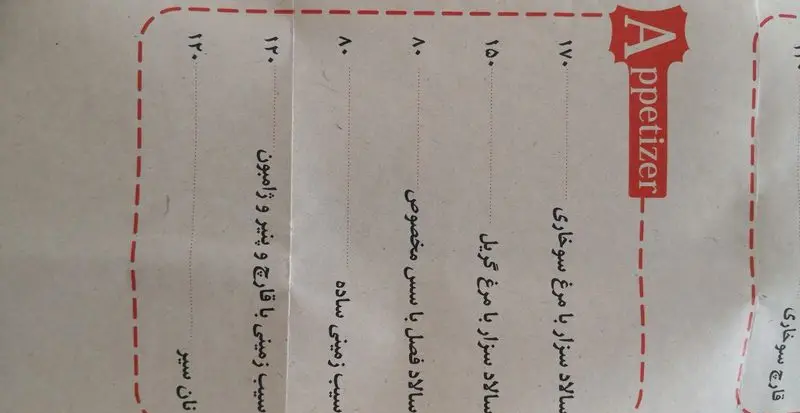 Appetizer
سالاد سزار با مرغ سوخاری ۱۷۰
سالاد سزار با مرغ گریل ۱۵۰
سالاد فصل با سس مخصوص ۸۰
سیب زمینی ساده ۸۰
سیب زمینی با قارچ و پنیر و ژامبون ۱۲۰
نان سیر ۱۲۰
قارچ سوخاری